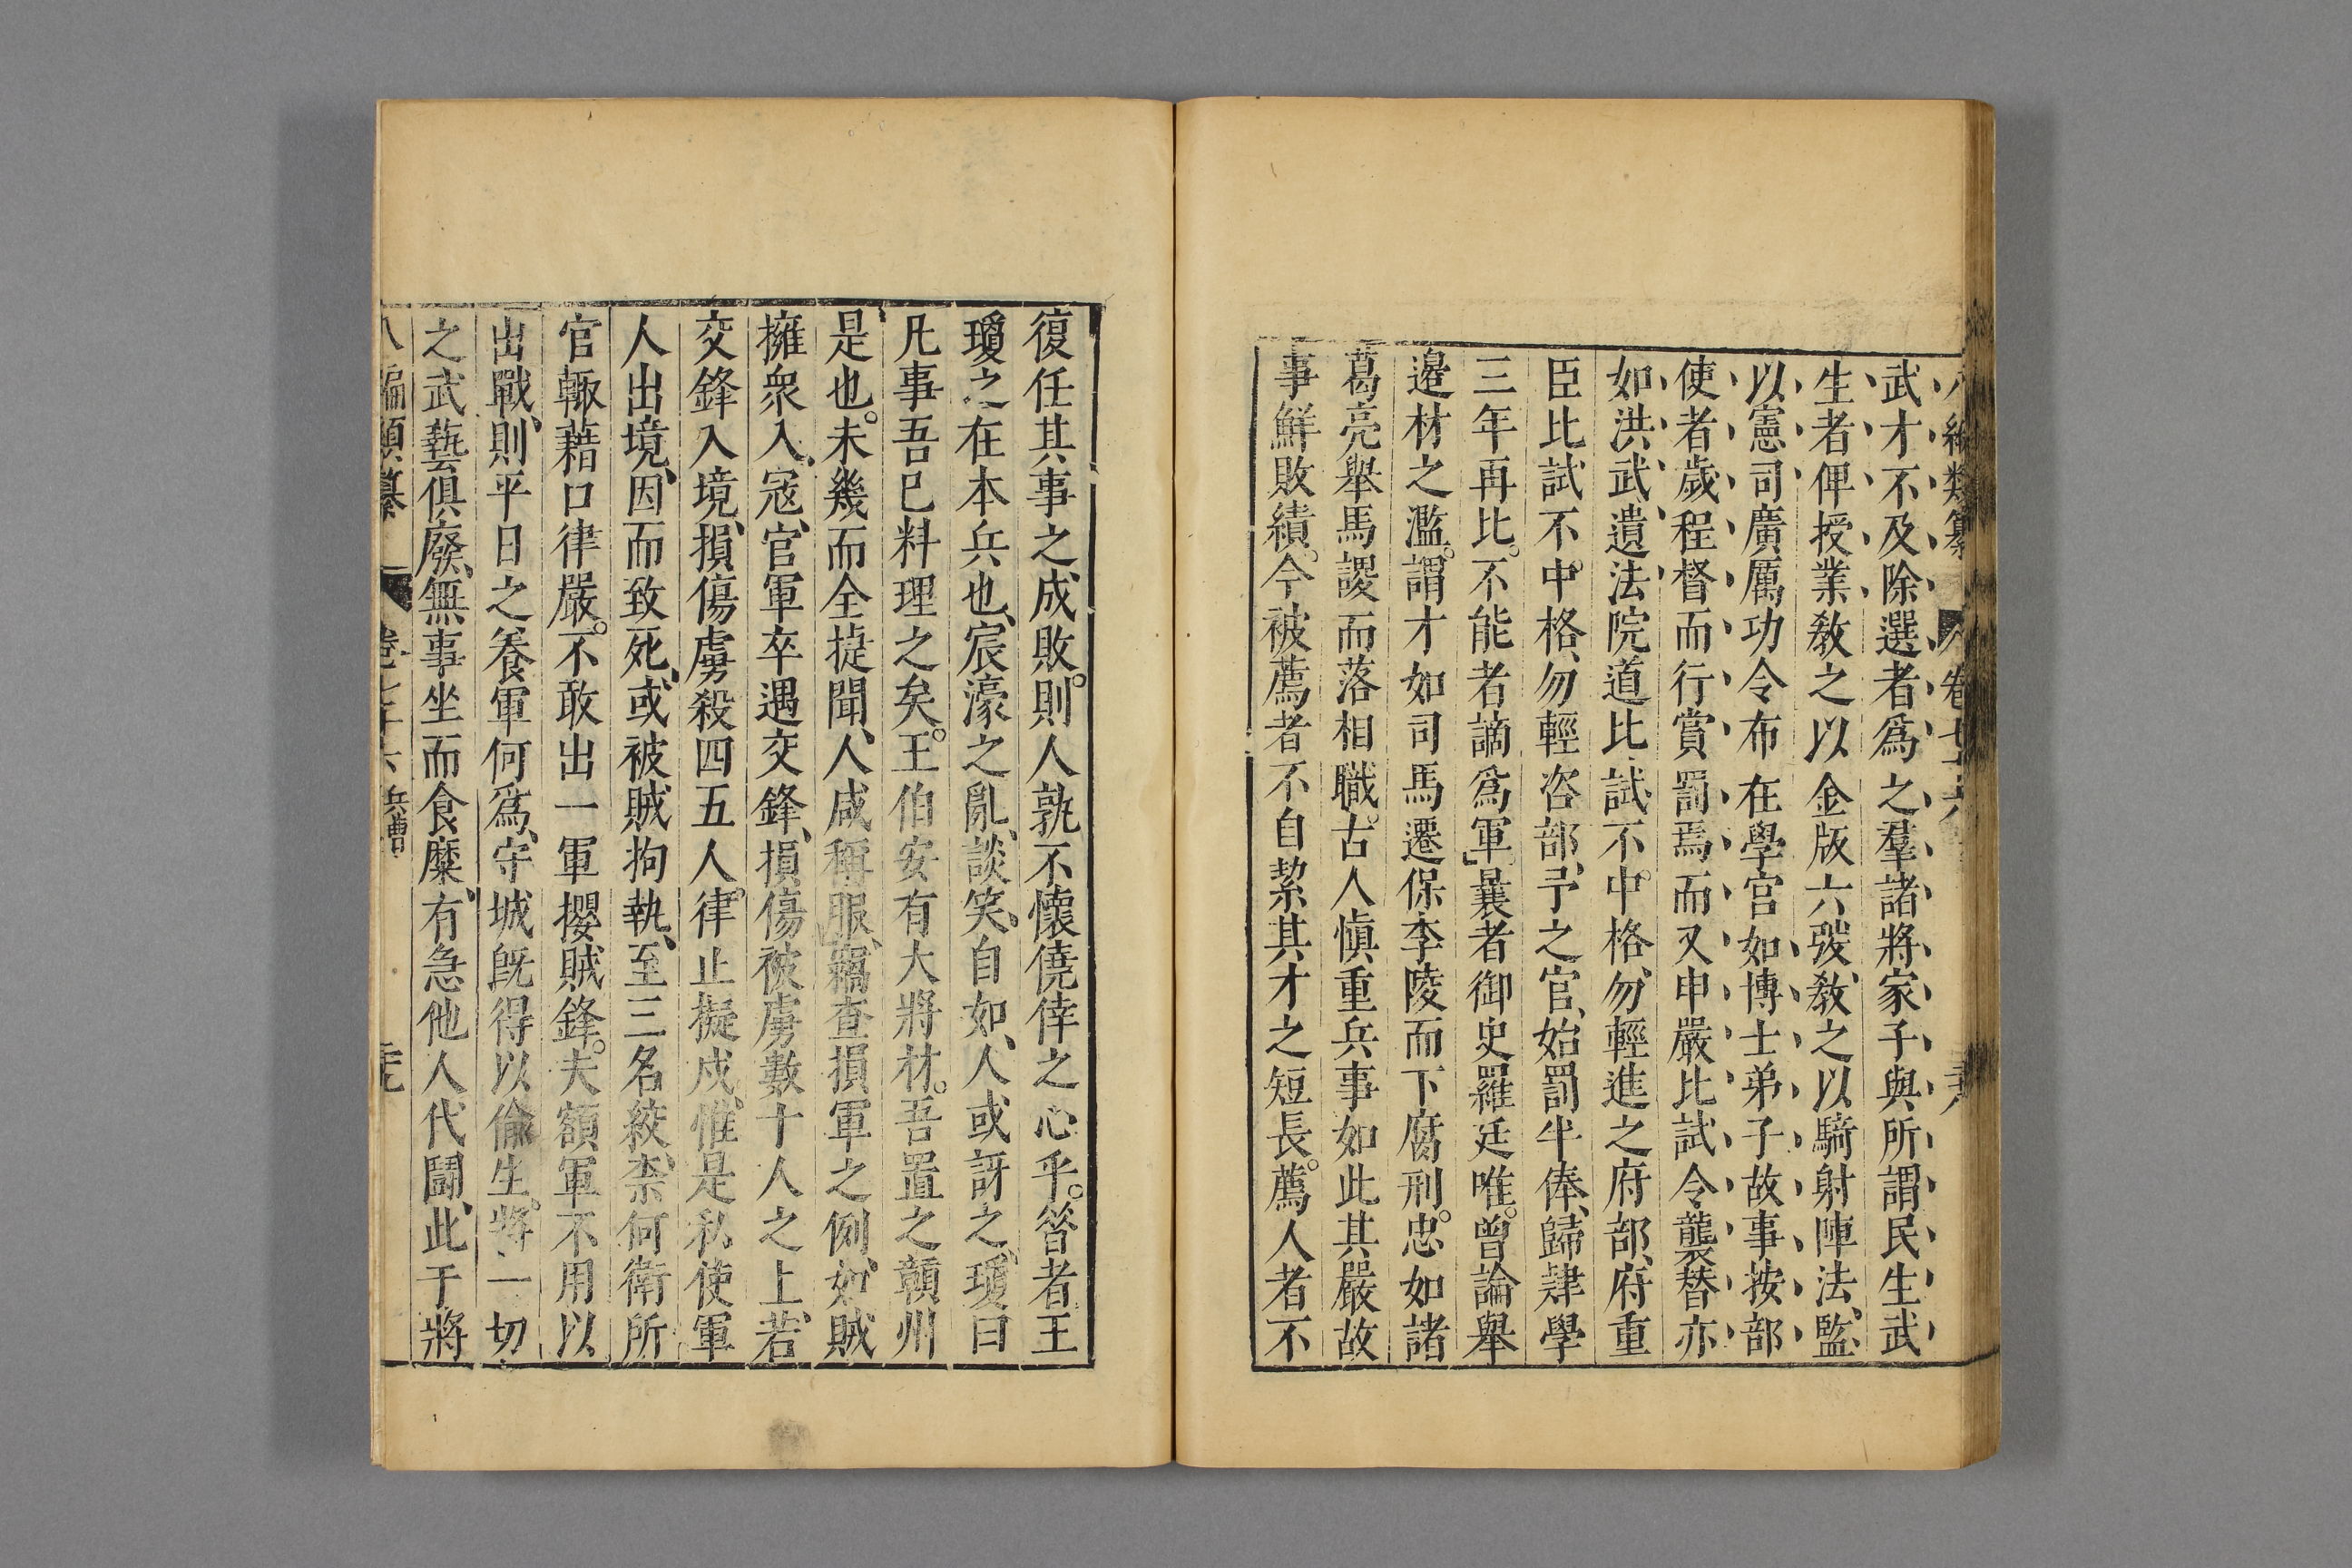 八編類纂 卷七十六
武才不及除選者爲之羣諸將家子與所謂民生武
生者俾授業教之以金版六弢教之以騎射陣法監
以憲司廣厲功令布在學宫如博士弟子故事按部
使者歲程督而行賞罰焉而又申嚴比試令襲替亦
如洪武遺法院道比試不中格勿輕進之府部府重
臣比試不中格勿輕咨部予之官始罰半俸歸肄學
三年再比不能者謫爲軍曩者御史羅廷唯曾論舉
邊材之濫謂才如司馬遷保李陵而下腐刑忠如諸
葛亮舉馬謖而落相職古人愼重兵事如此其嚴故
事鮮敗績今被薦者不自絜其才之短長薦人者不
復任其事之成敗則人孰不懷僥倖之心乎。昝者王
瓊之在本兵也宸濠之亂談笑自如人或訝之瓊曰
凡事吾已料理之矣。王伯安有大將材。吾置之贛州
是也。未幾而全㨗聞、人咸稱服、竊查損軍之例、如賊
擁衆入寇、官軍卒遇交鋒、損傷被虜數十人之上、若
交鋒入境、損傷虜殺四五人。律止擬戍。惟是私使軍
人出境、因而致死、或被賊拘執、至三名絞、柰何衛所
官輙藉口律嚴。不敢出一軍攖賊鋒。夫額軍不用以
出戰、則平日之養軍何爲、守城旣得以偷生。將一切
之武藝俱廢、無事坐而食糜、有急他人代鬪、此于將
八編類纂 卷七十六 兵曹 三九